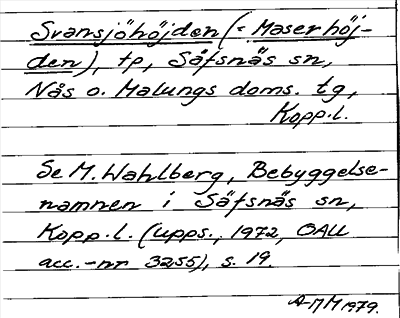 Svansjöhöjden (= Maserhöj-
den), tp, Säfsnäs sn,
Nås o. Malungs doms. tg,
Kopp.l.
Se M. Wahlberg, Bebyggelse-
namnen i Säfsnäs sn,
Kopp.l. (upps., 1972, OAU
acc.-nr 3255), s. 19.
A-MM 1979.